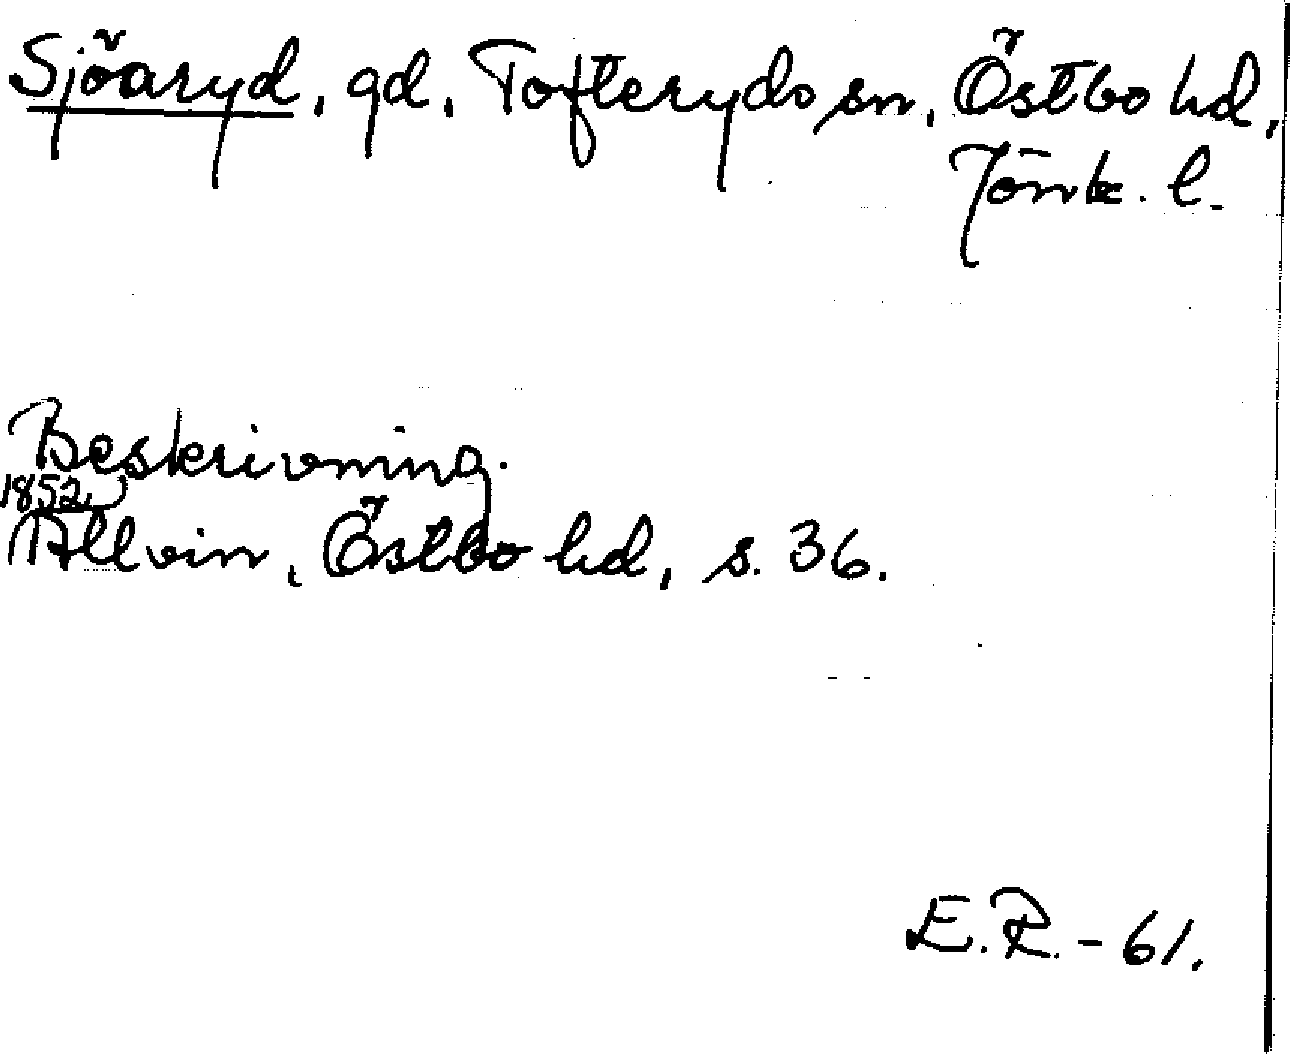 Sjöaryd, gd, Tofteryds sn, Östbo hd,
Jönk. l.
Beskrivning.
1852
Allvin, Östbo hd, s. 36.
E.R. - 61.